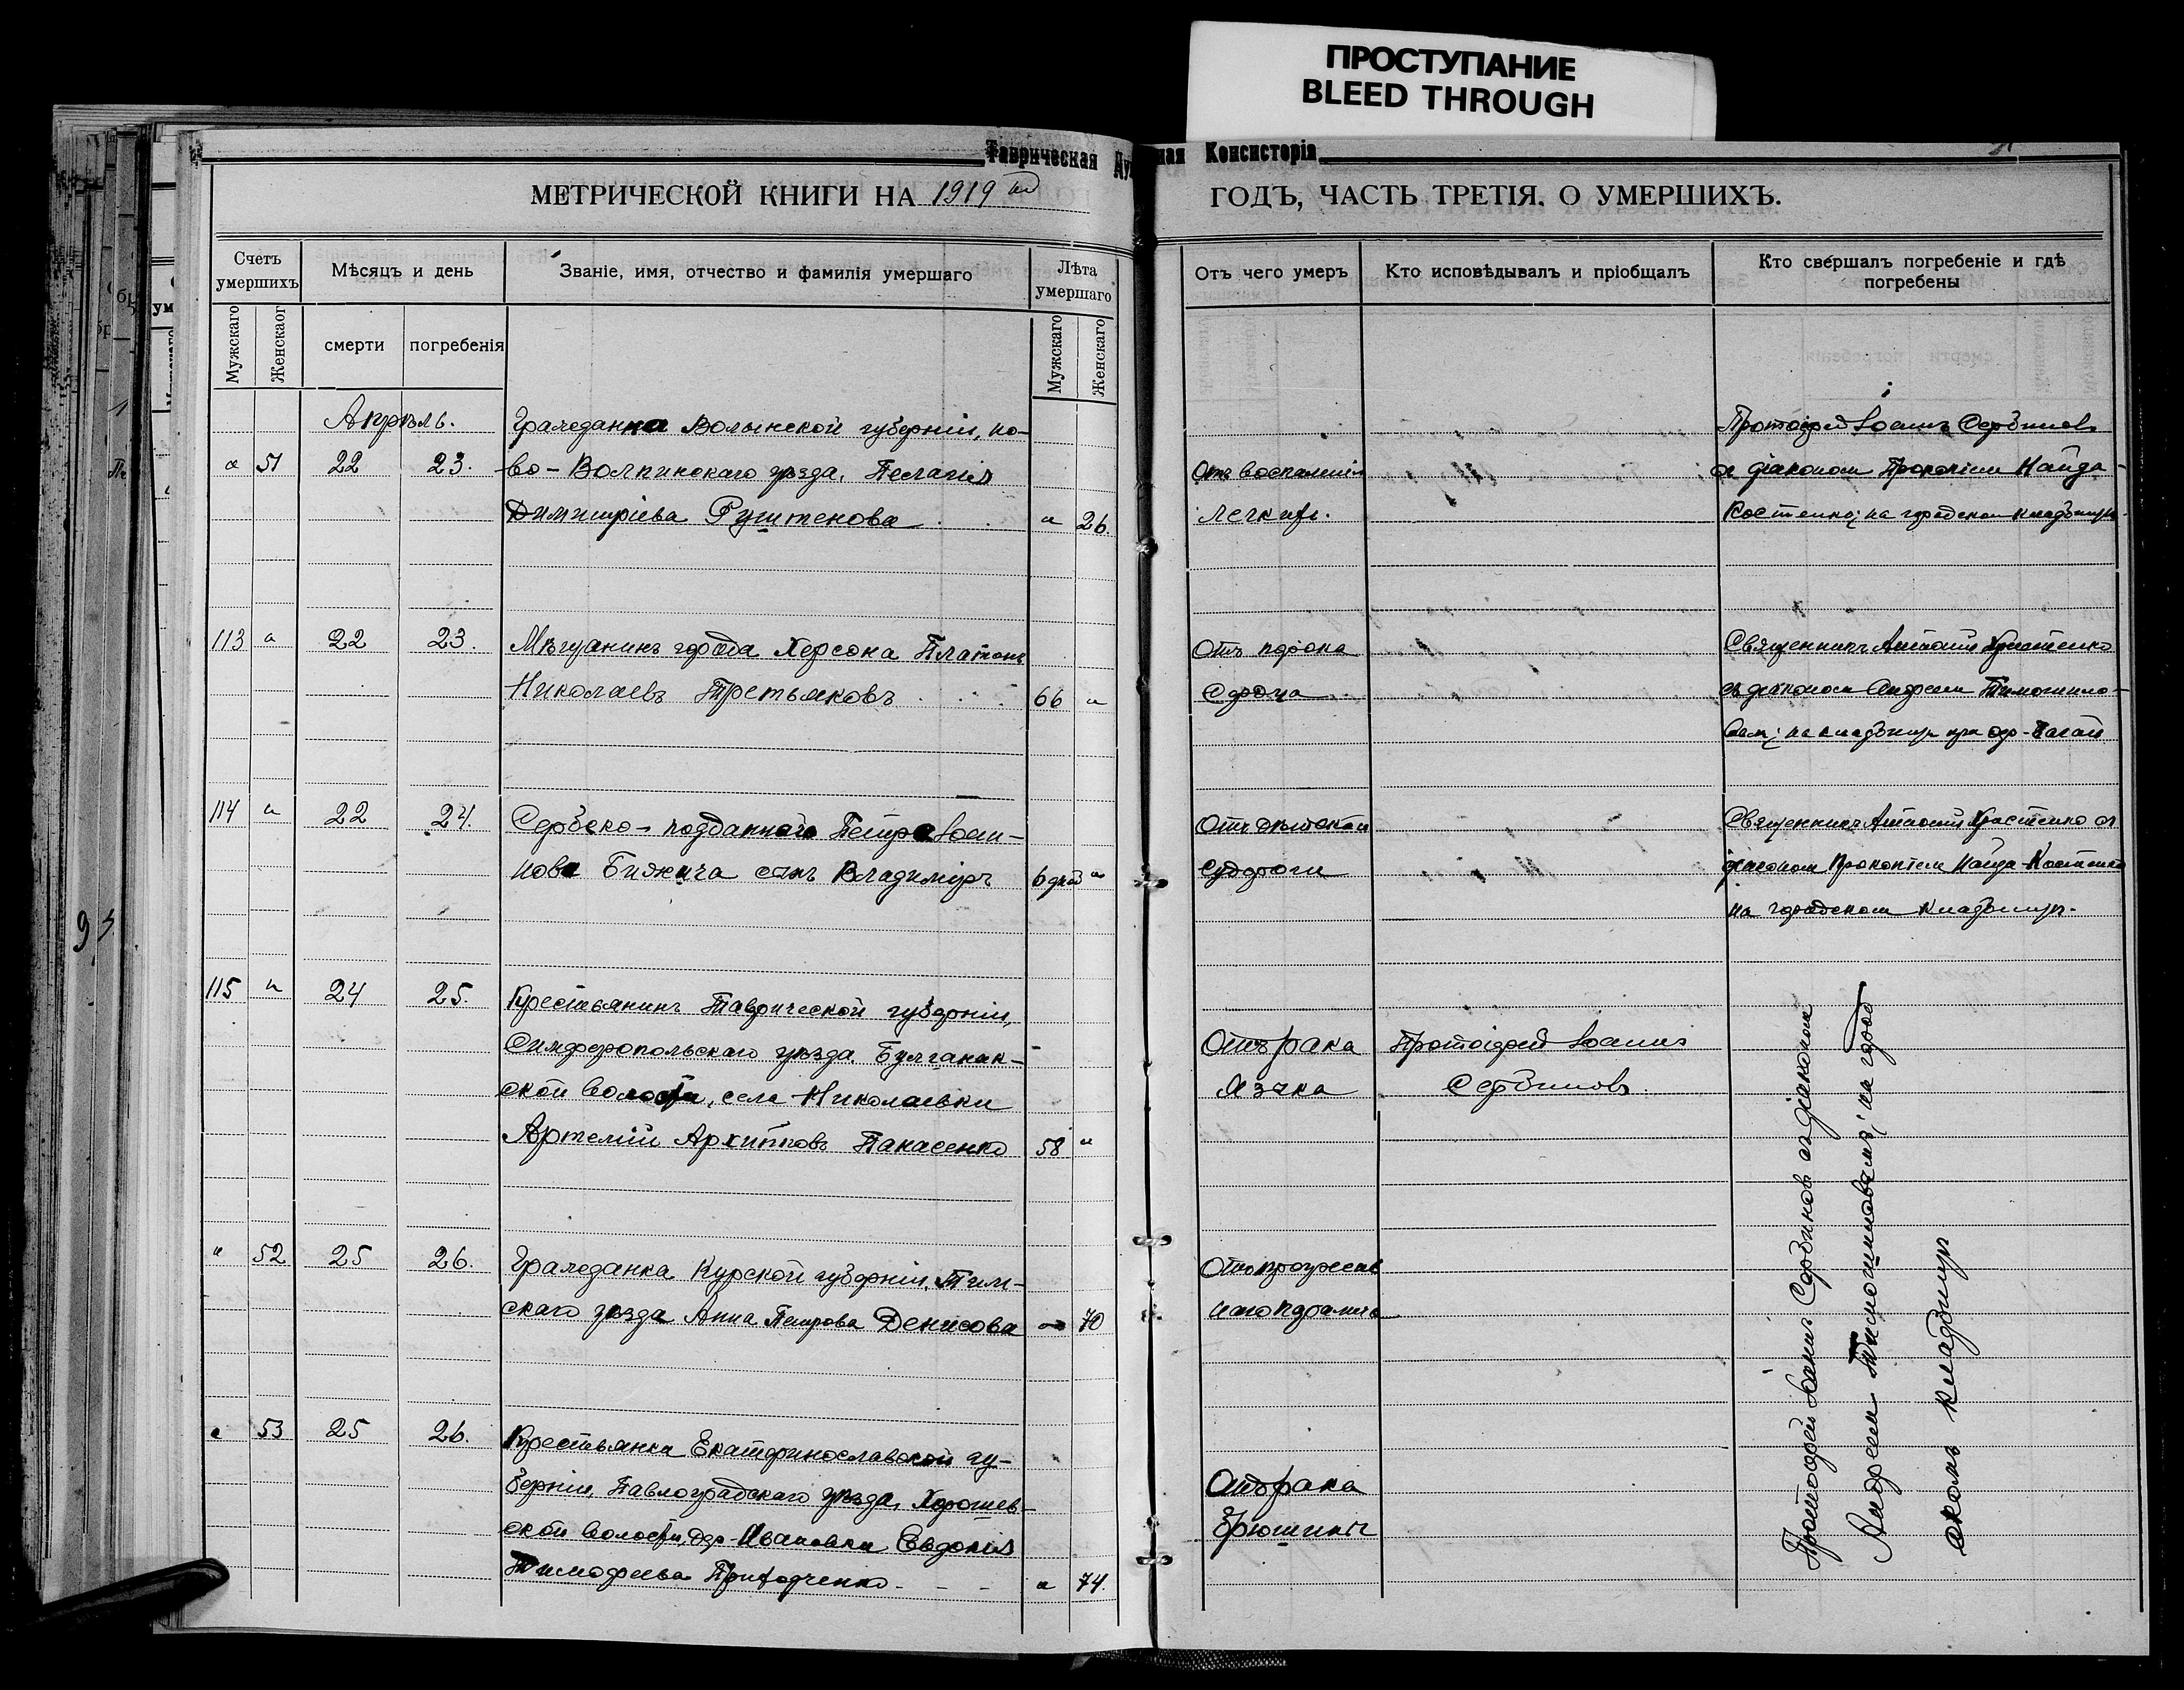 ПРОСТУПАНИЕ
BLEED THROUGH
Таврическая Ду ная Консисторія
МЕТРИЧЕСКОЙ КНИГИ НА 1919 й ГОДЪ, ЧАСТЬ ТРЕТІЯ, О УМЕРШИХЪ.
Счетъ умершихъ
Мѣсяцъ и день
Званіе, имя, отчество и фамилія умершаго
Лѣта умершаго
Отъ чего умеръ
Кто исповѣдывалъ и пріобщалъ
Кто свершалъ погребеніе и гдѣ
погребены
Мужскаго
Женскаог
смерти
погребенія
Мужскаго
Женскаго
Апрѣль.
Гражданка Волынской губерніи, но-
" 51 22 23. во-Волынскаго уѣзда, Пелагія
Димитріева 26.
Отъ воспаленія
легкихъ.
Протоіерей Іоаннъ Сербиновъ
съ діакономъ Прокопіемъ Найда-
Костенко; на городскомъ кладбищѣ.
113 " 22 23. Мѣщанинъ города Херсона Платонъ
Николаевъ Третьяковъ 66 "
Отъ порока
сердца
Священникъ
съ діакономъ Андреем Тимошино-
вым; на кладбищѣ при
114 " 22 24. Сербско-подданнаго Петра Іоан-
нова сынъ Владиміръ 6 дней "
Отъ дѣтской
судороги
Священникъ съ
діакономъ Прокопіемъ Найда-Костенко
на городскомъ кладбищѣ.
115 " 24 25. Крестьянинъ Таврической губерніи,
Симферопольскаго уѣзда, Булганак-
ской волости, села Николаевки
Артемій Архиповъ Панасенко 58 "
Отъ рака
языка
Протоіерей Іоаннъ
Сербиновъ
" 52 25 26. Гражданка Курской губерніи, Тим-
скаго уѣзда Анна Петрова Денисова " 70
Отъ прогрессив
наго паралича
" 53 25 26. Крестьянка Екатеринославской гу-
берніи, Павлоградскаго уѣзда, Хорошев-
ской волости, дер. Ивановки Евдокія
Тимофеева Приходченко " 74.
Отъ рака
брюшины
Протоіерей Іоаннъ Сербиновъ съ діакономъ
Андреем Тимошиновымъ; на город
скомъ кладбищѣ